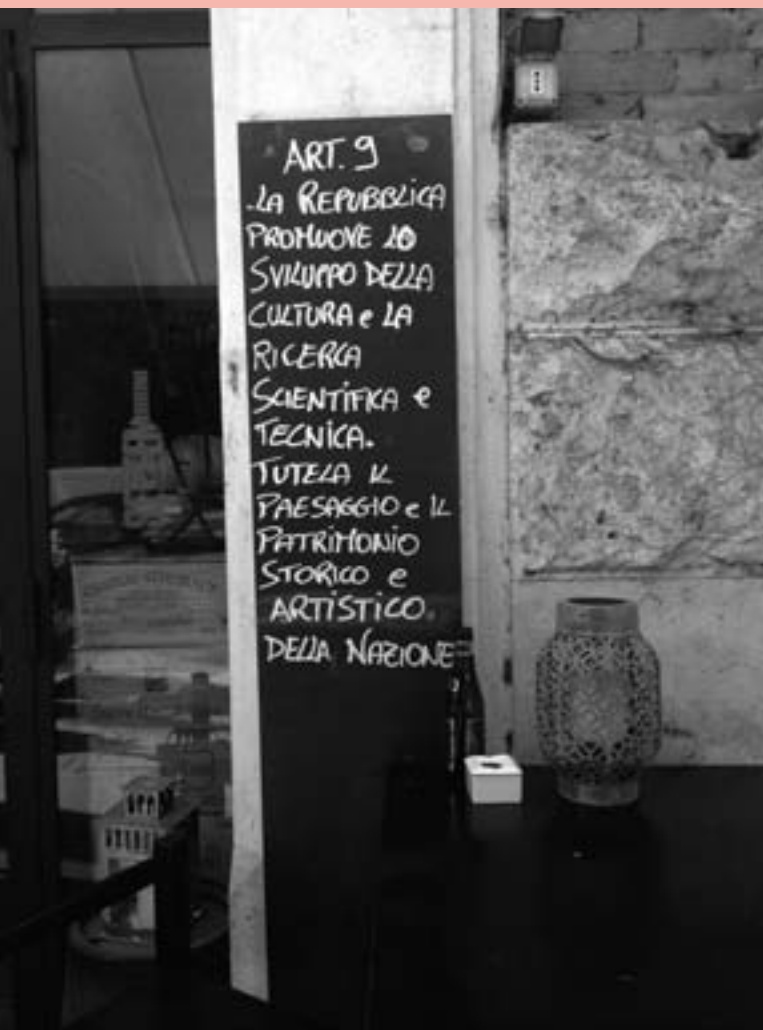 ART. 9
.LA REPUBBLICA
PROMUOVE LO
SVILUPPO DELLA
CULTURA e LA
RICERCA
SCIENTIFICA e
TECNICA.
TUTELA IL
PAESAGGIO e IL
PATRIMONIO
STORICO e
ARTISTICO.
DELLA NAZIONE